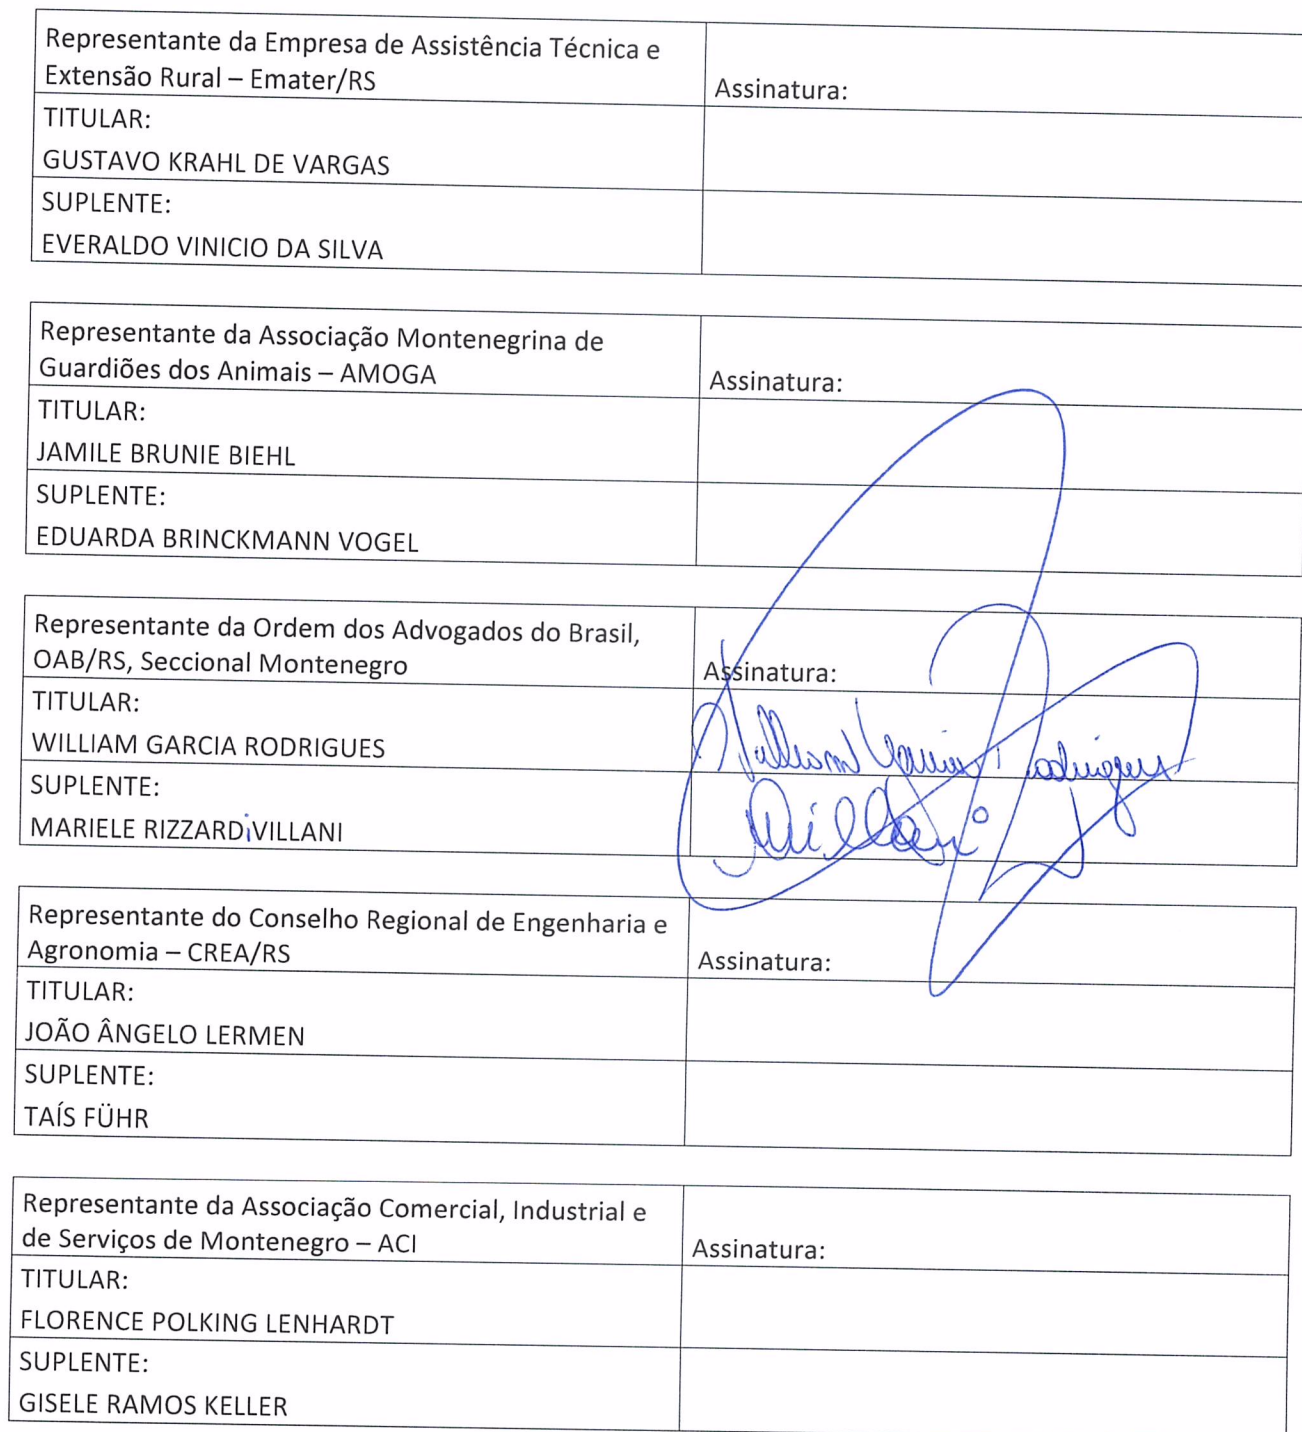 Representante da Empresa de Assistência Técnica e
Extensão Rural – Emater/RS
Assinatura:
TITULAR:
GUSTAVO KRAHL DE VARGAS
SUPLENTE:
EVERALDO VINICIO DA SILVA
Representante da Associação Montenegrina de
Guardiões dos Animais – AMOGA
Assinatura:
TITULAR:
JAMILE BRUNIE BIEHL
SUPLENTE:
EDUARDA BRINCKMANN VOGEL
Representante da Ordem dos Advogados do Brasil,
OAB/RS, Seccional Montenegro
Assinatura:
TITULAR:
WILLIAM GARCIA RODRIGUES
William Garcia Rodrigues
SUPLENTE:
MARIELE RIZZARDiVILLANI
Representante do Conselho Regional de Engenharia e
Agronomia – CREA/RS
Assinatura:
TITULAR:
JOÃO ÂNGELO LERMEN
SUPLENTE:
TAÍS FÜHR
Representante da Associação Comercial, Industrial e
de Serviços de Montenegro – ACI
Assinatura:
TITULAR:
FLORENCE POLKING LENHARDT
SUPLENTE:
GISELE RAMOS KELLER